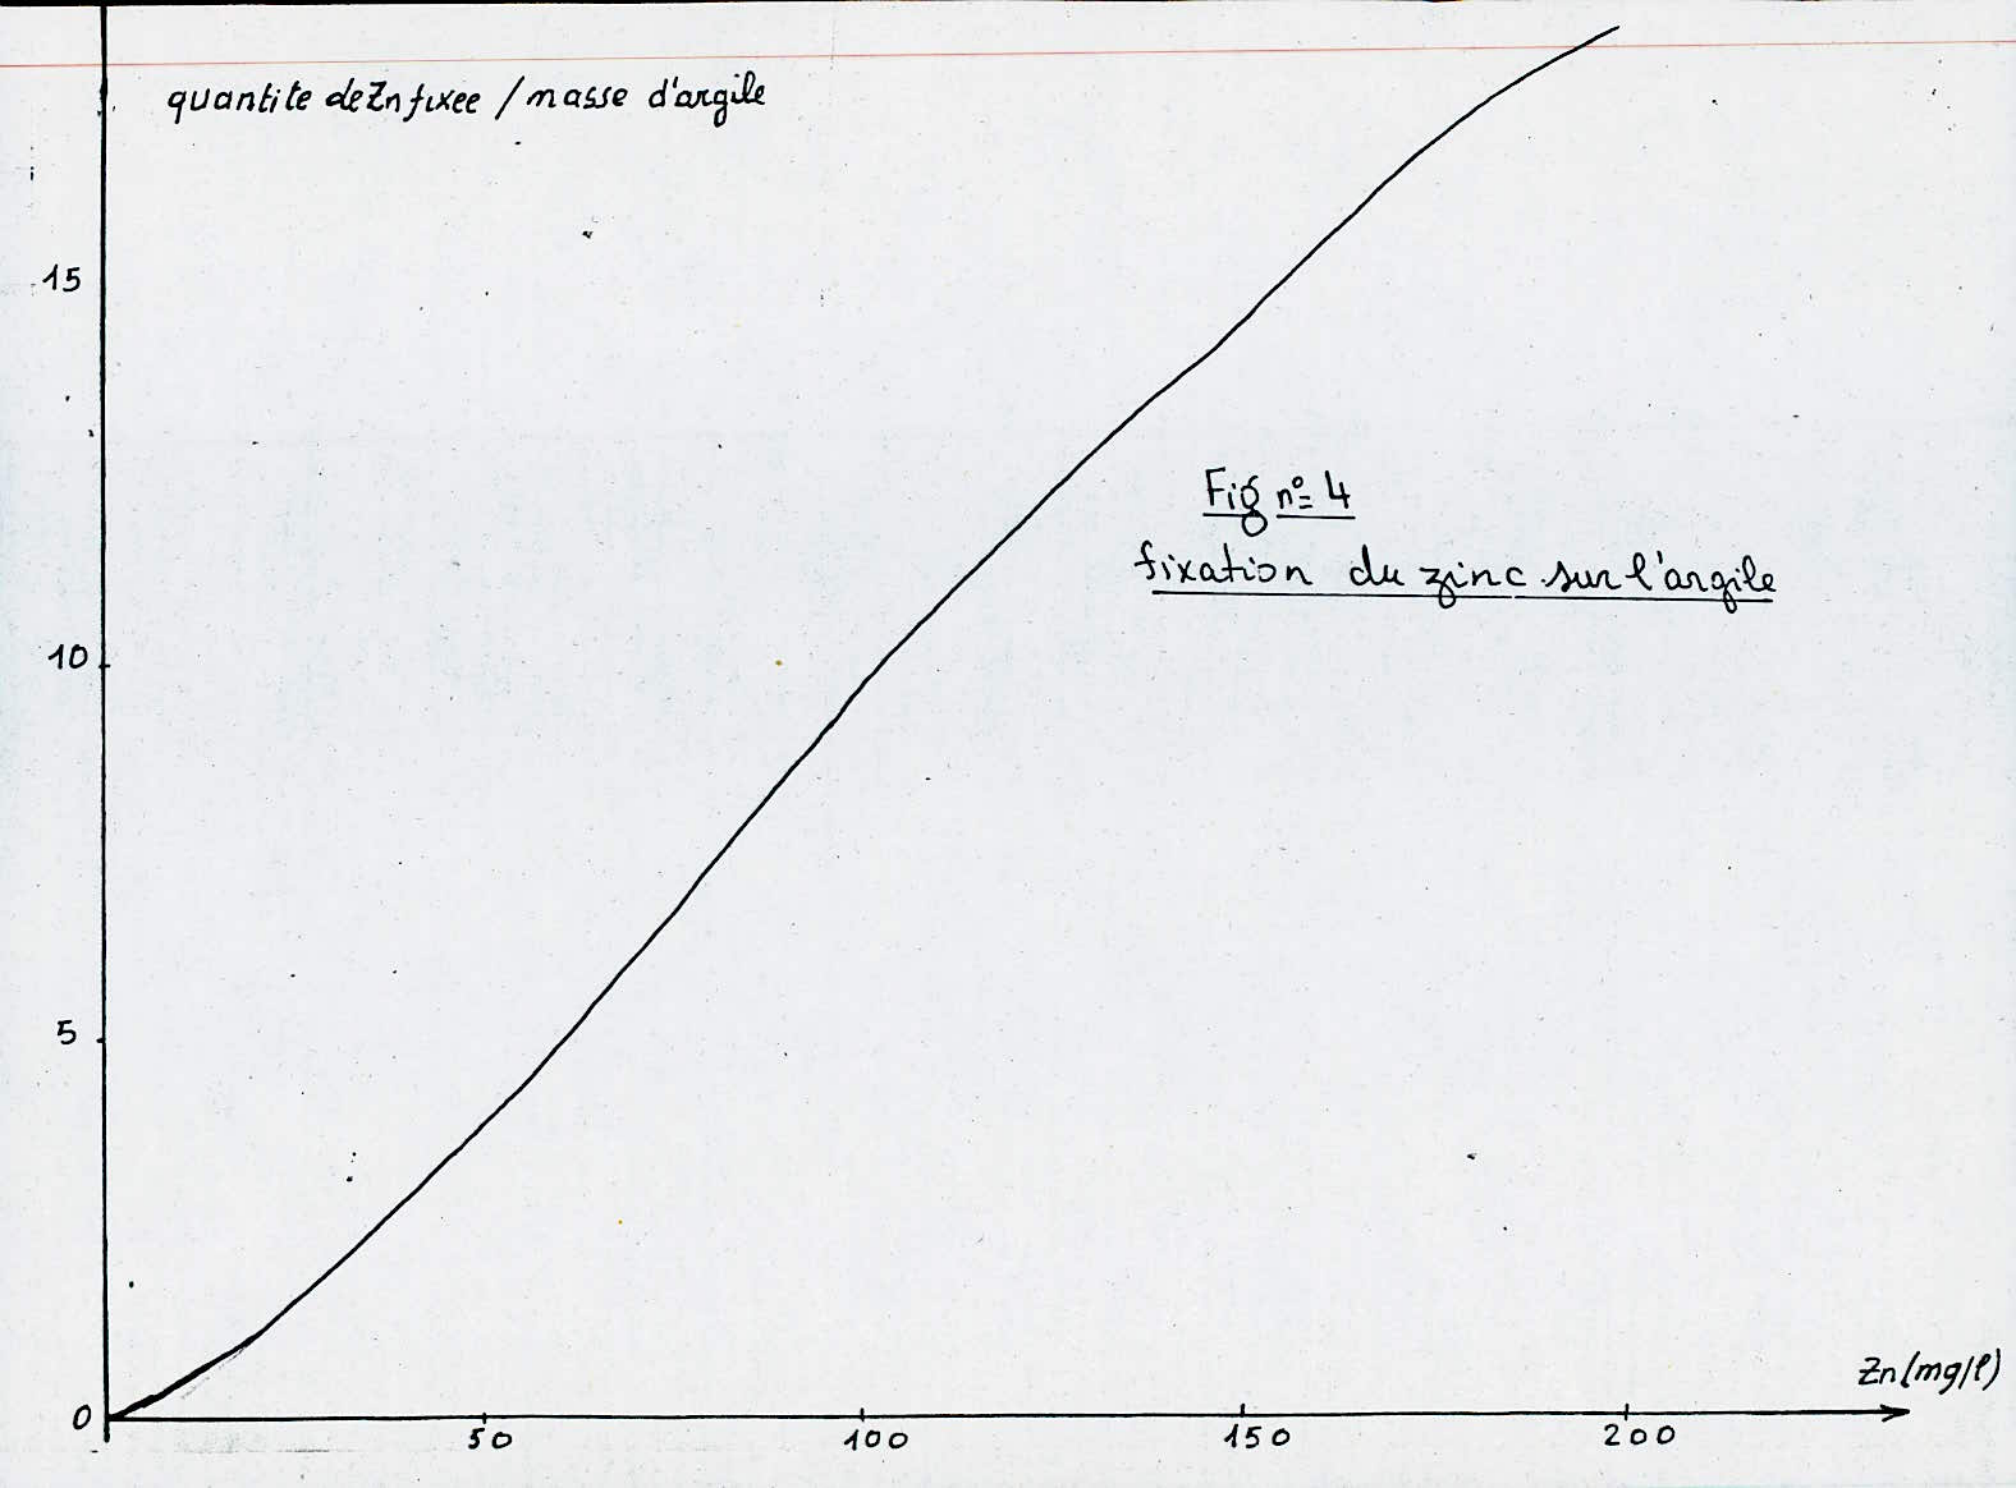 quantite de Zn fixee / masse d'argile
15
Fig n° 4
fixation du zinc sur l'argile
10
5
Zn (mg/l)
0
50 100 150 200